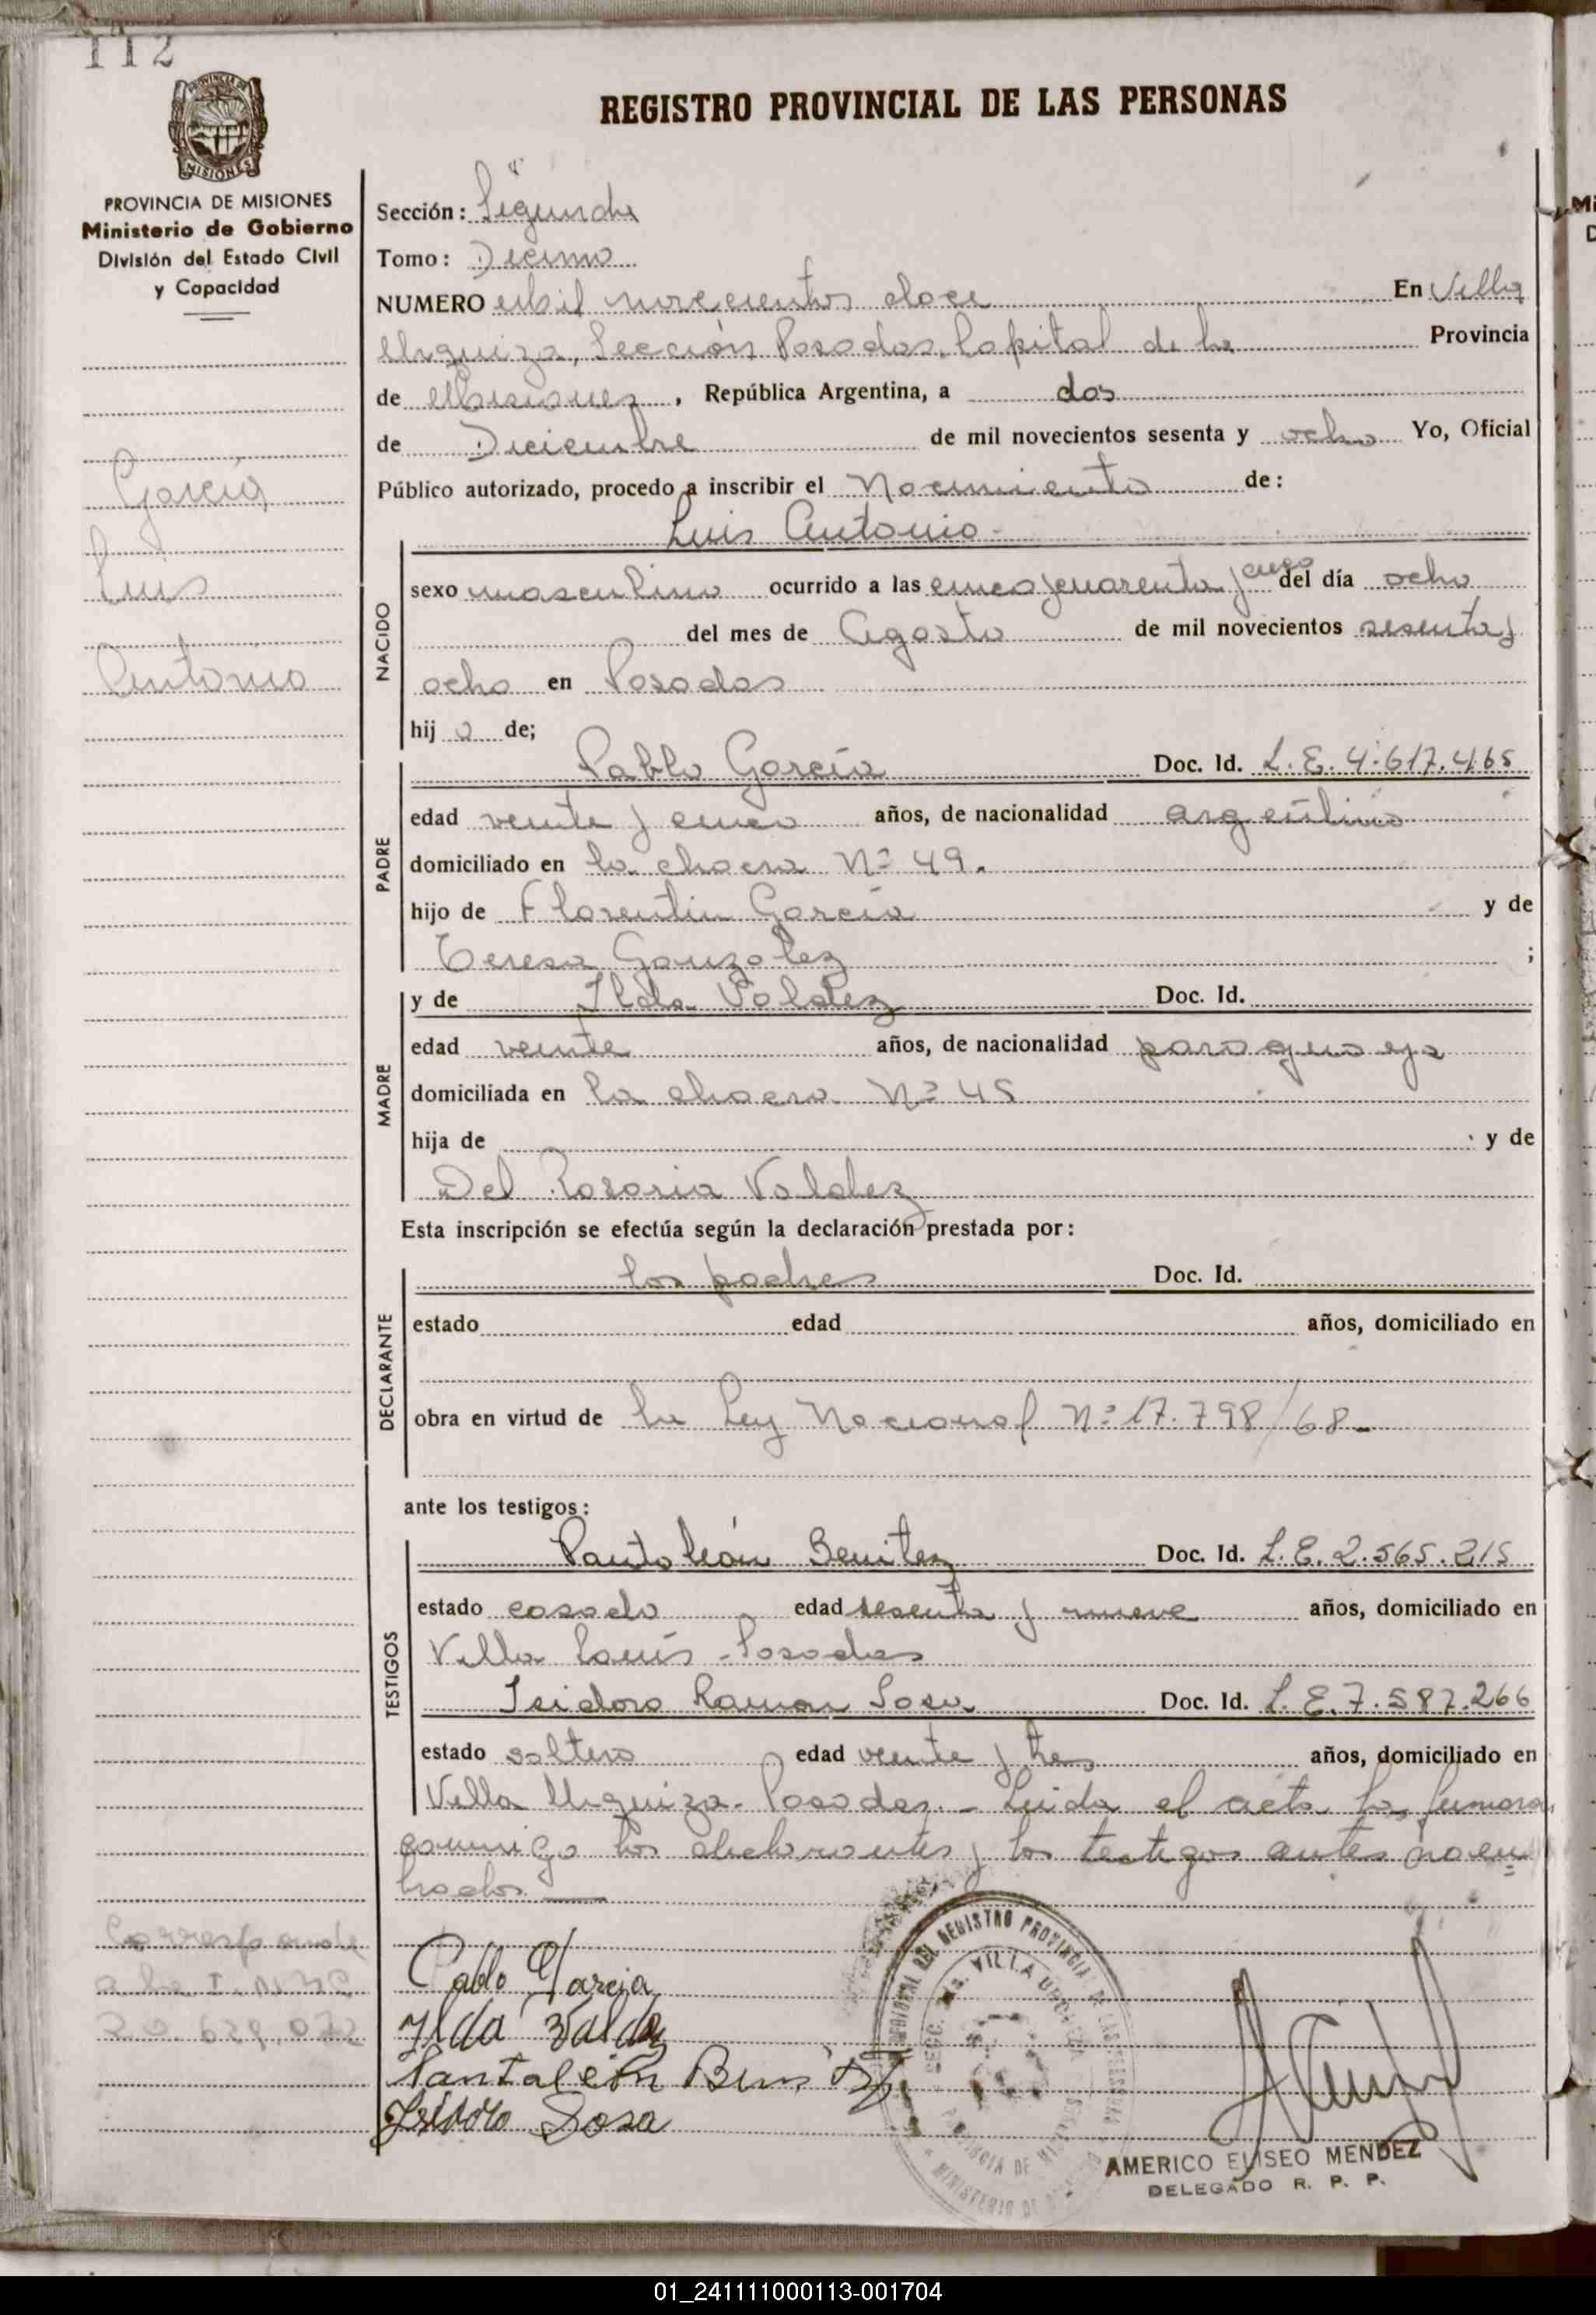 112
REGISTRO PROVINCIAL DE LAS PERSONAS
PROVINCIA DE MISIONES
Ministerio de Gobierno
División del Estado Civil
y Capacidad
García
Luis
Antonio
Sección: Segunda
Tomo: Decimo
NUMERO mil novecientos doce En Villa
Urquiza, Sección Posadas, Capital de la Provincia
de Misiones, República Argentina, a dos
de Diciembre de mil novecientos sesenta y ocho Yo, Oficial
Público autorizado, procedo a inscribir el Nacimiento de:
Luis Antonio
NACIDO
sexo masculino ocurrido a las cinco y cuarenta y cinco del día ocho
del mes de Agosto de mil novecientos sesenta y
ocho en Posadas
hijo de;
PADRE
Pablo García Doc. Id. L.E. 4.617.465
edad veinte y cinco años, de nacionalidad argentino
domiciliado en la chacra Nº 49.
hijo de Florentin García y de
Teresa Gonzalez ;
MADRE
y de Ilda Valdez Doc. Id.
edad veinte años, de nacionalidad paraguaya
domiciliada en la chacra Nº 45
hija de y de
Del Rosaria Valdez
Esta inscripción se efectúa según la declaración prestada por:
DECLARANTE
los padres Doc. Id.
estado edad años, domiciliado en
obra en virtud de la Ley Nacional Nº 17.798/68-
ante los testigos:
TESTIGOS
Pantoleón Benitez Doc. Id. L.E. 2.565.215
estado casado edad sesenta y nueve años, domiciliado en
Villa Lanús - Posadas
Isidoro Ramon Sosa Doc. Id. L.E. 7.587.266
estado soltero edad veinte y tres años, domiciliado en
Villa Urquiza - Posadas. - Leida el acta la firman
conmigo los declarantes y los testigos antes
Corresponde
a la I. Nº
20.629.072
Pablo Garcia
Ilda Valdez
Pantaleón
Isidoro Sosa
REGISTRO PROVINCIAL DE LAS PERSONAS
VILLA URQUIZA
PROVINCIA DE MISIONES
MINISTERIO DE
AMERICO ELISEO MENDEZ
DELEGADO R. P. P.
01_241111000113-001704